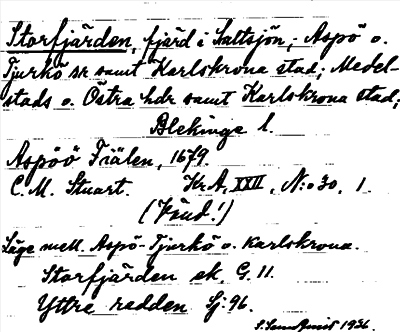 Storfjärden, fjärd i Saltsjön; Aspö o.
Tjurkö sr samt Karlskrona stad; Medel-
stads o. Östra hdr samt Karlskrona stad;
Blekinge l.
Aspöö Fiälen, 1679.
C. M. Stuart. Kr.A, XXII, N:o 30, 1
(Känd!)
Läge mell. Aspö-Tjurkö o. Karlskrona.
Storfjärden ek. G. 11.
Yttre redden Sj. 96.
1936